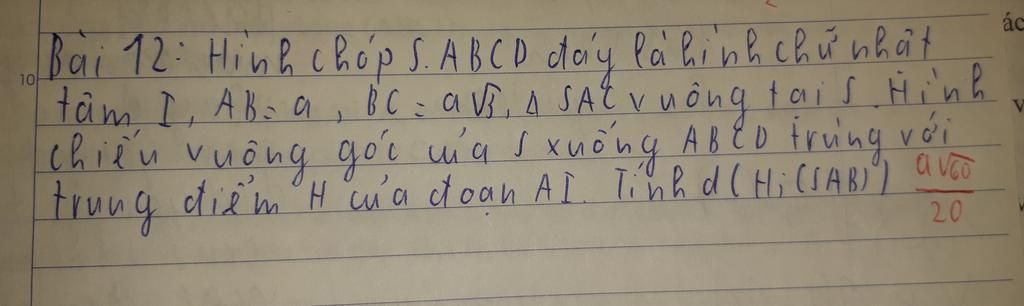 ác
Bài 12: Hình chóp S.ABCD đáy là hình chữ nhật
10
tâm I, AB = a, BC = a√3, Δ SAC vuông tại S. Hình
chiếu vuông góc của S xuống ABCD trùng với
trung điểm H của đoạn AI. Tính d(H;(SAB)) a√60/20